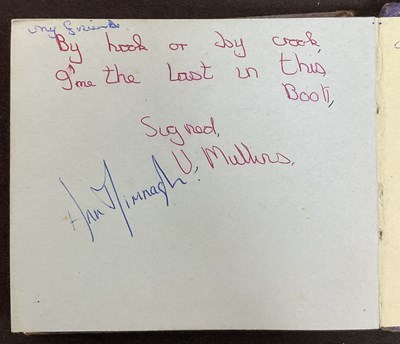 My friend
By hook or by crook,
I'me the Last in this
Book,
Signed,
V, Mullins,
Ann